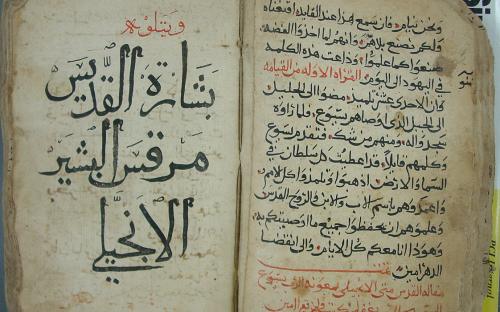 ونحن نيام فان سمع هذا عند القايد اقنعناه
ولكم نصنع بلا هم وانهم لما اخذوا الفضه
صنعوا كما علموا وذاعت هذه الكلمه
في اليهود الى اليوم القراه الاوله من القيامه
كان الاحدى عشر تلميذ مضوا الى الجليل
الى الجبل الذي اوصاهم يسوع فلما راوه
سجدوا له ومنهم من شك فتقدم يسوع
وكلمهم قايلا قد اعطيت كل سلطان في
السما والارض اذهبوا وتلمذوا كل الامم
واعمدوهم باسم الاب والابن والروح القدس
وعلموهم ان يحفظوا جميع ما اوصيتكم به
وهوذا انا معكم كل الايام والى انقضا
الدهر امين
القديس متى الانجيلي بمعونة الرب يسوع
ويتلوه
بشارة القديس
مرقس البشير
الانجيلي